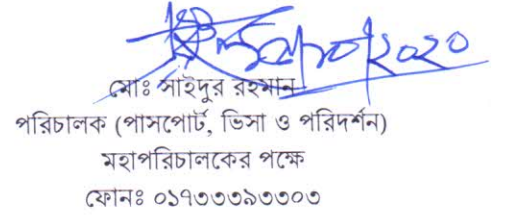 মোঃ সাইদুর রহমান
পরিচালক (পাসপোর্ট, ভিসা ও পরিদর্শন)
মহাপরিচালকের পক্ষে
ফোনঃ ০১৭৩৩৩৯৩৩০৩